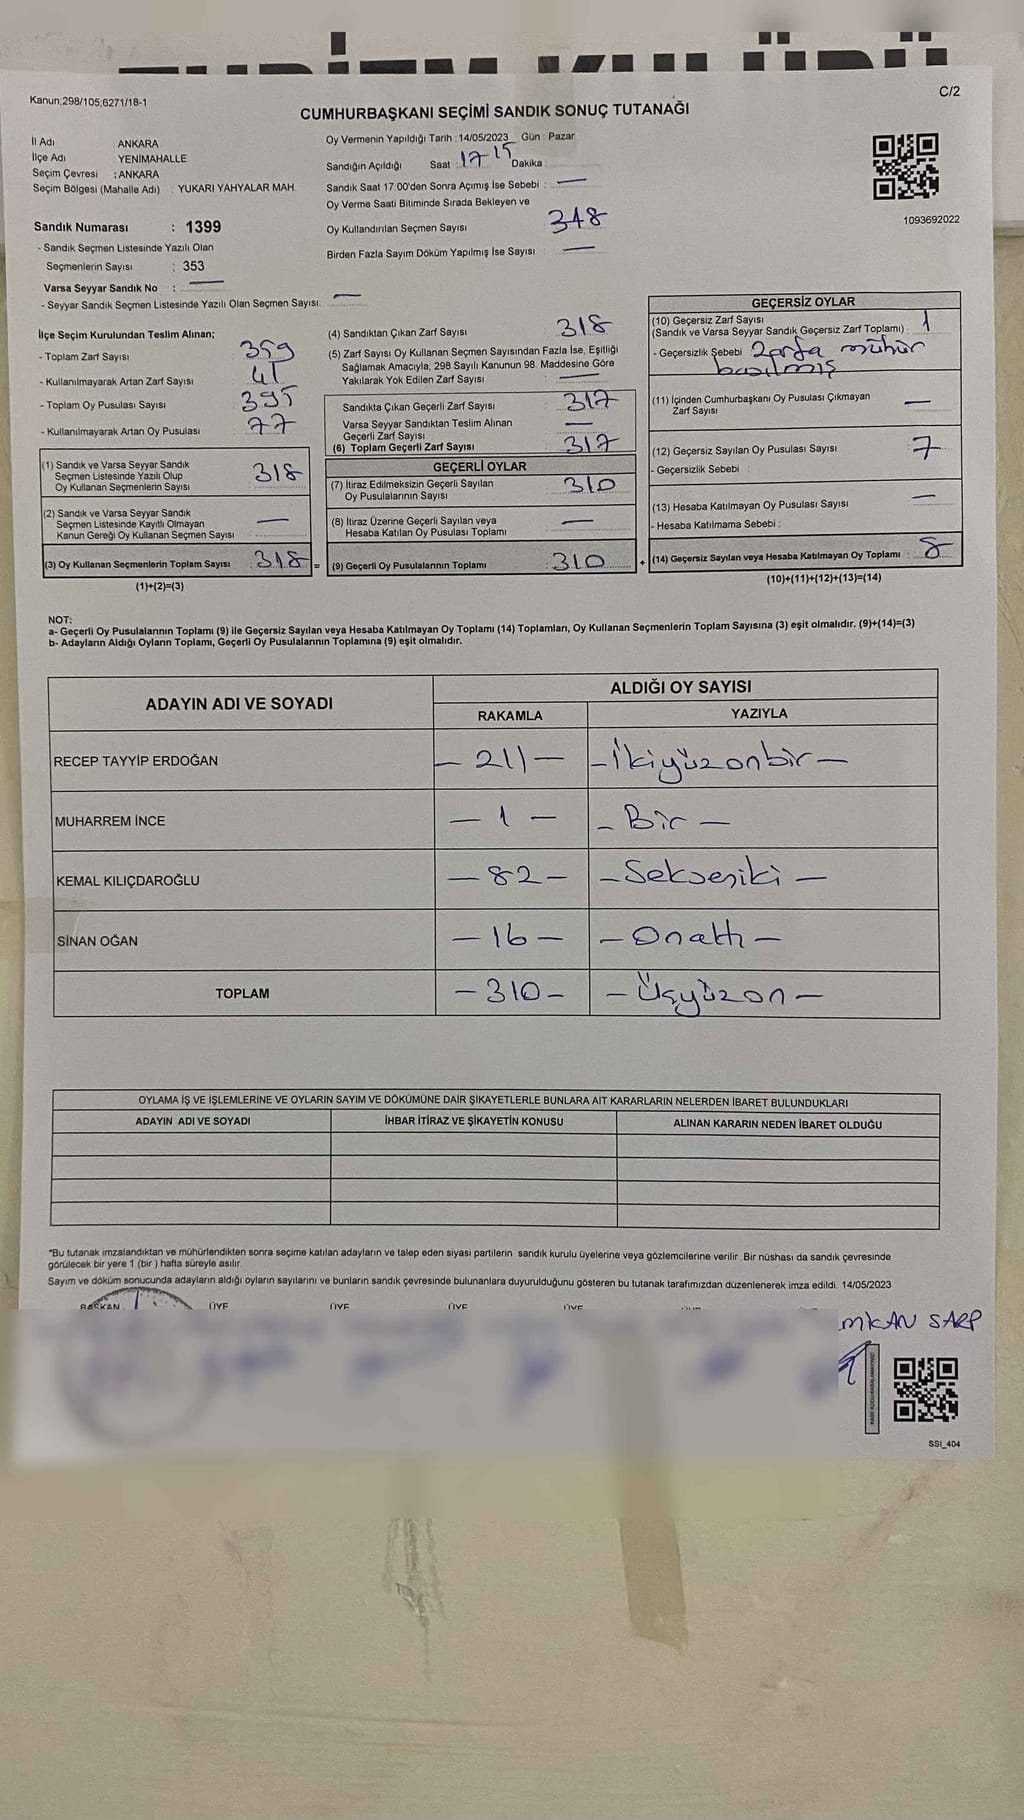 TURİZM KULÜBÜ
Kanun:298/105,6271/18-1
C/2
CUMHURBAŞKANI SEÇİMİ SANDIK SONUÇ TUTANAĞI
İl Adı : ANKARA
İlçe Adı : YENİMAHALLE
Seçim Çevresi : ANKARA
Seçim Bölgesi (Mahalle Adı) : YUKARI YAHYALAR MAH.
Oy Vermenin Yapıldığı Tarih : 14/05/2023 Gün : Pazar
Sandığın Açıldığı Saat : 17 15 Dakika :
Sandık Saat 17:00'den Sonra Açımış İse Sebebi : —
Oy Verme Saati Bitiminde Sırada Bekleyen ve
Oy Kullandırılan Seçmen Sayısı 318
Birden Fazla Sayım Döküm Yapılmış İse Sayısı : —
1093692022
Sandık Numarası : 1399
- Sandık Seçmen Listesinde Yazılı Olan
Seçmenlerin Sayısı : 353
Varsa Seyyar Sandık No : —
- Seyyar Sandık Seçmen Listesinde Yazılı Olan Seçmen Sayısı: —
İlçe Seçim Kurulundan Teslim Alınan;
- Toplam Zarf Sayısı 359
- Kullanılmayarak Artan Zarf Sayısı 41
- Toplam Oy Pusulası Sayısı 395
- Kullanılmayarak Artan Oy Pusulası 77
(1) Sandık ve Varsa Seyyar Sandık
Seçmen Listesinde Yazılı Olup
Oy Kullanan Seçmenlerin Sayısı 318
(2) Sandık ve Varsa Seyyar Sandık
Seçmen Listesinde Kayıtlı Olmayan
Kanun Gereği Oy Kullanan Seçmen Sayısı —
(3) Oy Kullanan Seçmenlerin Toplam Sayısı : 318 =
(1)+(2)=(3)
(4) Sandıktan Çıkan Zarf Sayısı 318
(5) Zarf Sayısı Oy Kullanan Seçmen Sayısından Fazla İse, Eşitliği
Sağlamak Amacıyla; 298 Sayılı Kanunun 98. Maddesine Göre
Yakılarak Yok Edilen Zarf Sayısı —
Sandıkta Çıkan Geçerli Zarf Sayısı 317
Varsa Seyyar Sandıktan Teslim Alınan
Geçerli Zarf Sayısı —
(6) Toplam Geçerli Zarf Sayısı 317
GEÇERLİ OYLAR
(7) İtiraz Edilmeksizin Geçerli Sayılan
Oy Pusulalarının Sayısı 310
(8) İtiraz Üzerine Geçerli Sayılan veya
Hesaba Katılan Oy Pusulası Toplamı —
(9) Geçerli Oy Pusulalarının Toplamı : 310 +
GEÇERSİZ OYLAR
(10) Geçersiz Zarf Sayısı
(Sandık ve Varsa Seyyar Sandık Geçersiz Zarf Toplamı) : 1
- Geçersizlik Sebebi : Zarfa mühür
basılmış
(11) İçinden Cumhurbaşkanı Oy Pusulası Çıkmayan
Zarf Sayısı —
(12) Geçersiz Sayılan Oy Pusulası Sayısı 7
- Geçersizlik Sebebi :
(13) Hesaba Katılmayan Oy Pusulası Sayısı —
- Hesaba Katılmama Sebebi :
(14) Geçersiz Sayılan veya Hesaba Katılmayan Oy Toplamı : 8
(10)+(11)+(12)+(13)=(14)
NOT:
a- Geçerli Oy Pusulalarının Toplamı (9) ile Geçersiz Sayılan veya Hesaba Katılmayan Oy Toplamı (14) Toplamları, Oy Kullanan Seçmenlerin Toplam Sayısına (3) eşit olmalıdır. (9)+(14)=(3)
b- Adayların Aldığı Oyların Toplamı, Geçerli Oy Pusulalarının Toplamına (9) eşit olmalıdır.
ADAYIN ADI VE SOYADI
ALDIĞI OY SAYISI
RAKAMLA YAZIYLA
RECEP TAYYİP ERDOĞAN — 211 — — İkiyüzonbir —
MUHARREM İNCE — 1 — — Bir —
KEMAL KILIÇDAROĞLU — 82 — — Sekseniki —
SİNAN OĞAN — 16 — — Onaltı —
TOPLAM — 310 — — Üçyüzon —
OYLAMA İŞ VE İŞLEMLERİNE VE OYLARIN SAYIM VE DÖKÜMÜNE DAİR ŞİKAYETLERLE BUNLARA AİT KARARLARIN NELERDEN İBARET BULUNDUKLARI
ADAYIN ADI VE SOYADI İHBAR İTİRAZ VE ŞİKAYETİN KONUSU ALINAN KARARIN NEDEN İBARET OLDUĞU
*Bu tutanak imzalandıktan ve mühürlendikten sonra seçime katılan adayların ve talep eden siyasi partilerin sandık kurulu üyelerine veya gözlemcilerine verilir. Bir nüshası da sandık çevresinde
görülecek bir yere 1 (bir ) hafta süreyle asılır.
Sayım ve döküm sonucunda adayların aldığı oyların sayılarını ve bunların sandık çevresinde bulunanlara duyurulduğunu gösteren bu tutanak tarafımızdan düzenlenerek imza edildi. 14/05/2023
BAŞKAN ÜYE ÜYE ÜYE ÜYE
SARP
SSI_404